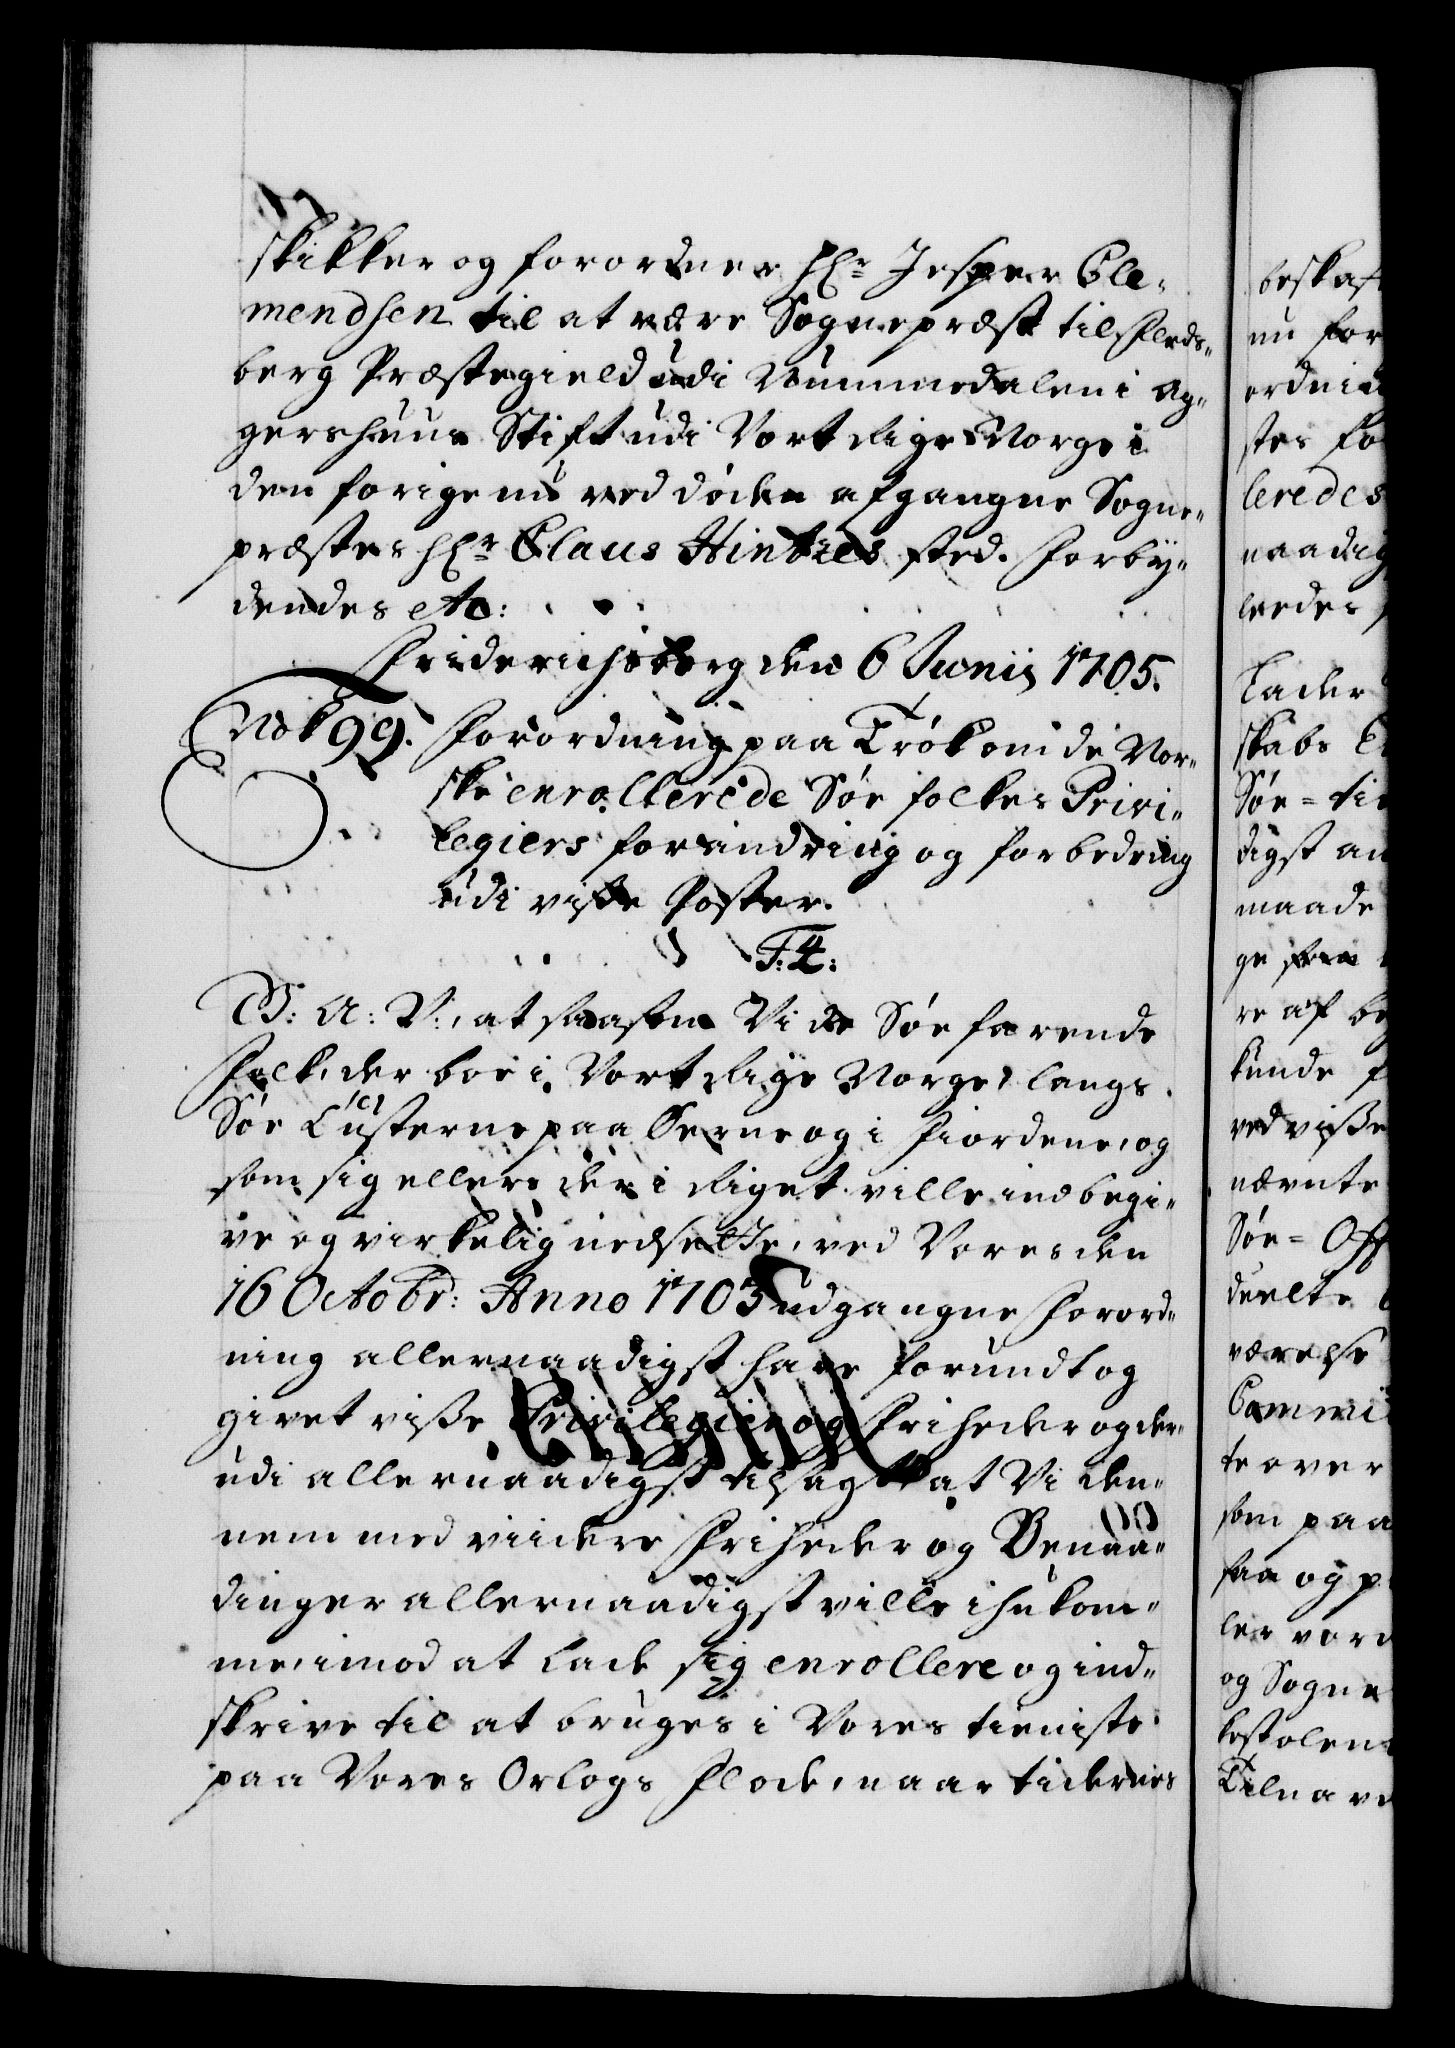 skikker og forordner Hr Jesper Cle-
mendsen til at være Sognepræst til Fleds-
berg Præstegield udi Nummedalen i Ag-
gershuus Stift udi Vort Rige Norge i
den forige nu ved døden afgangne Sogne-
præstes Hr Claus Hintzes sted. Forby-
dendes etc:
Friderichsborg den 6 Junii 1705.
No 199. Forordning paa Trøk om de Nor-
ske enrollerede Søe folkes Privi-
legiers forandring og forbedring
udi visse Poster.
F: 4:
G: A: V:, at saasom Vi de Søe farende
Folk, der boe i Vort Rige Norge, langs
Søe Custerne paa Øerne og i Fiordene, og
som sig ellers der i Riget ville indbegi-
ve og virkelig nedsette, ved Vores den
16 Octobr: Anno 1703 udgangne Forord-
ning allernaadigst have forundt og
givet visse Privilegier og Friheder og der-
udi allernaadigst tilsagt at Vi den-
nem med viidere Friheder og Benaa-
dinger allernaadigst ville ihukom-
me, imod at lade sig enrollere og ind-
skrive til at bruges i Vores tieniste
paa Vores Orlogs Flode, naar tidernes
beskaf
nu for
ordni
stes fo
leredes
naadig
ledes
Lader
skabs
Søe-ti
digst an
maade
ge som
re af be
kunde f
ved visse
nævnte
Søe-Off
deelte
værelse
Commi
te over
som paa
saa og p
ler vord
og Sogne
kestolen
Tilna